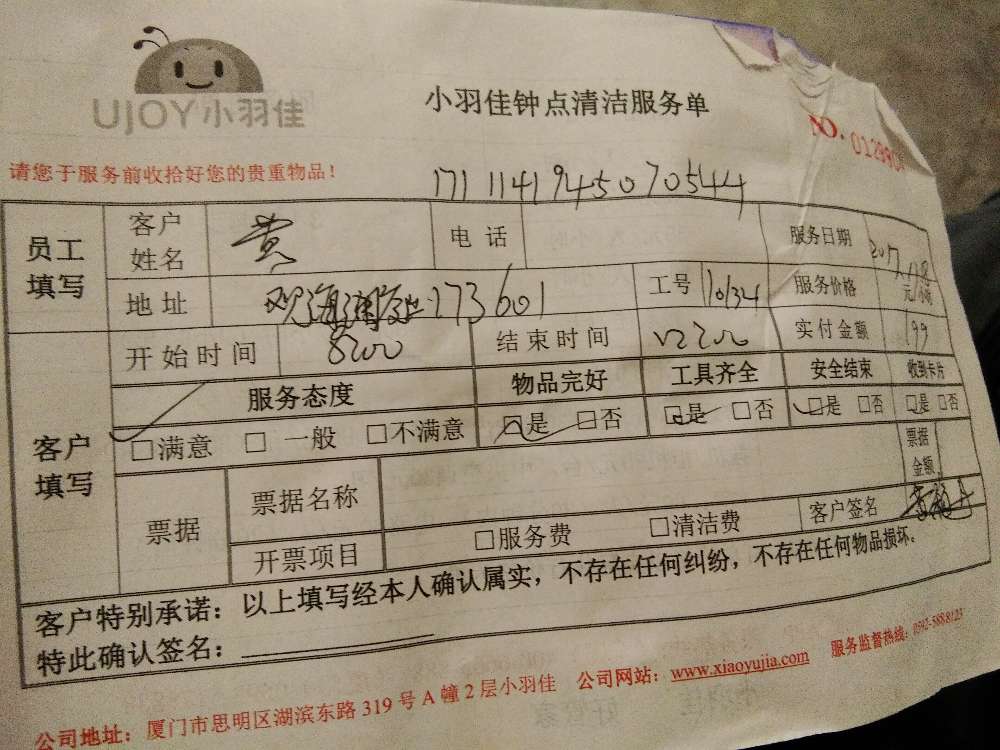 UJOY小羽佳
小羽佳钟点清洁服务单
NO.
请您于服务前收拾好您的贵重物品！
171114194507 0544
员工填写 客户姓名 黄 电话 服务日期
地址 273601 工号 110134 服务价格 元/小时
开始时间 8:00 结束时间 12:00 实付金额 199
服务态度 物品完好 工具齐全 安全结束 收到卡片
客户填写 □满意 □一般 □不满意 □是 □否 □是 □否 □是 □否 □是 □否
票据 票据名称 票据金额
开票项目 □服务费 □清洁费 客户签名
客户特别承诺：以上填写经本人确认属实，不存在任何纠纷，不存在任何物品损坏。
特此确认签名：
公司地址：厦门市思明区湖滨东路319号A幢2层小羽佳 公司网站：www.xiaoyujia.com 服务监督热线：0592-5888123